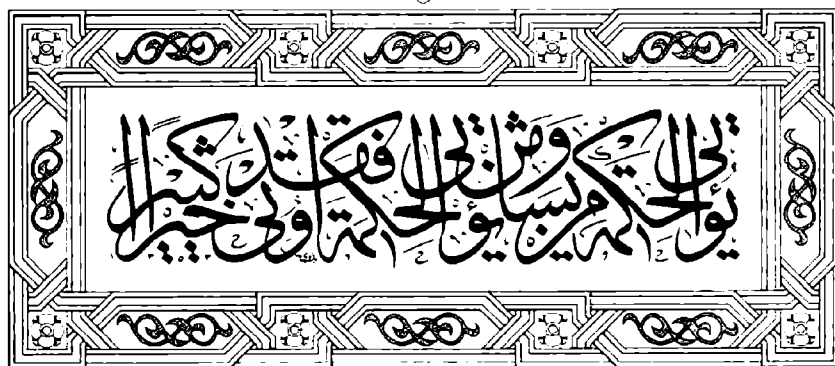 يؤتي الحكمة من يشاء ومن يؤتى الحكمة فقد أوتي خيرا كثيرا